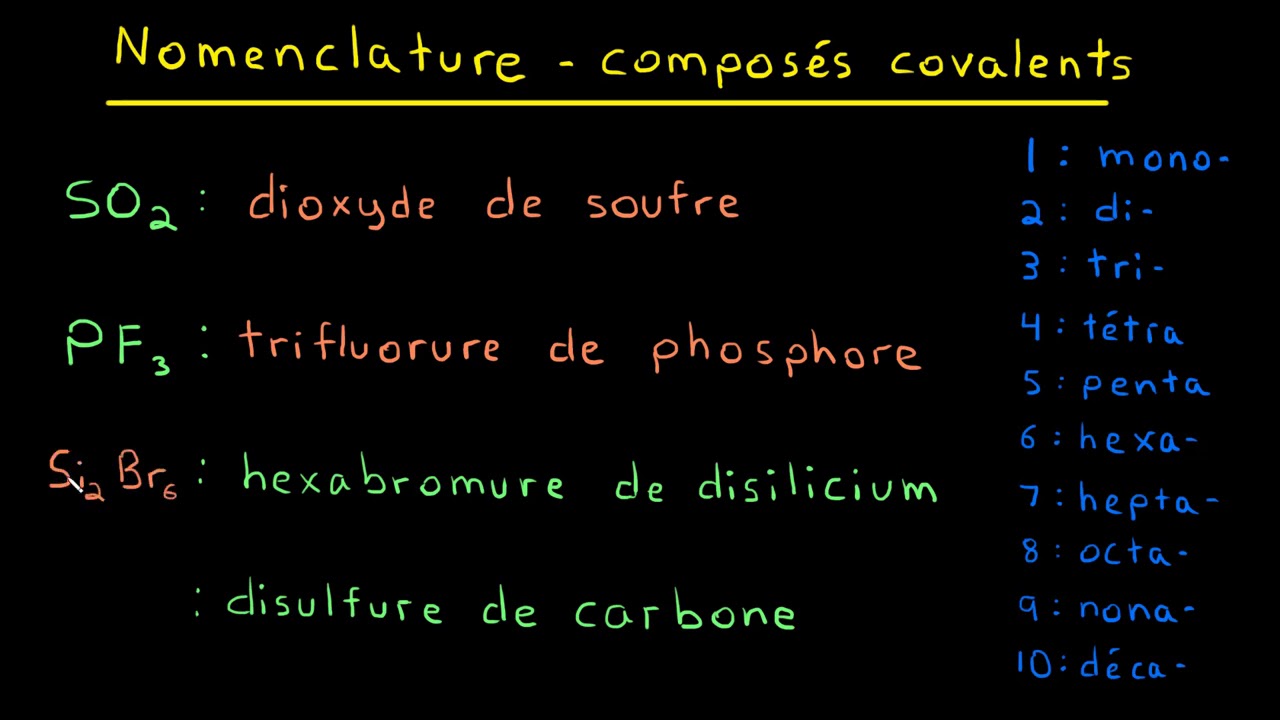 Nomenclature - composés covalents
SO₂ : dioxyde de soufre
PF₃ : trifluorure de phosphore
Si₂Br₆ : hexabromure de disilicium
: disulfure de carbone
1 : mono-
2 : di-
3 : tri-
4 : tétra
5 : penta
6 : hexa-
7 : hepta-
8 : octa-
9 : nona-
10 : déca-